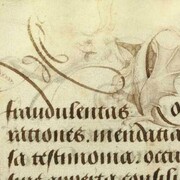 fraudulentas
rationes. mendatia
sa testimonia. occu